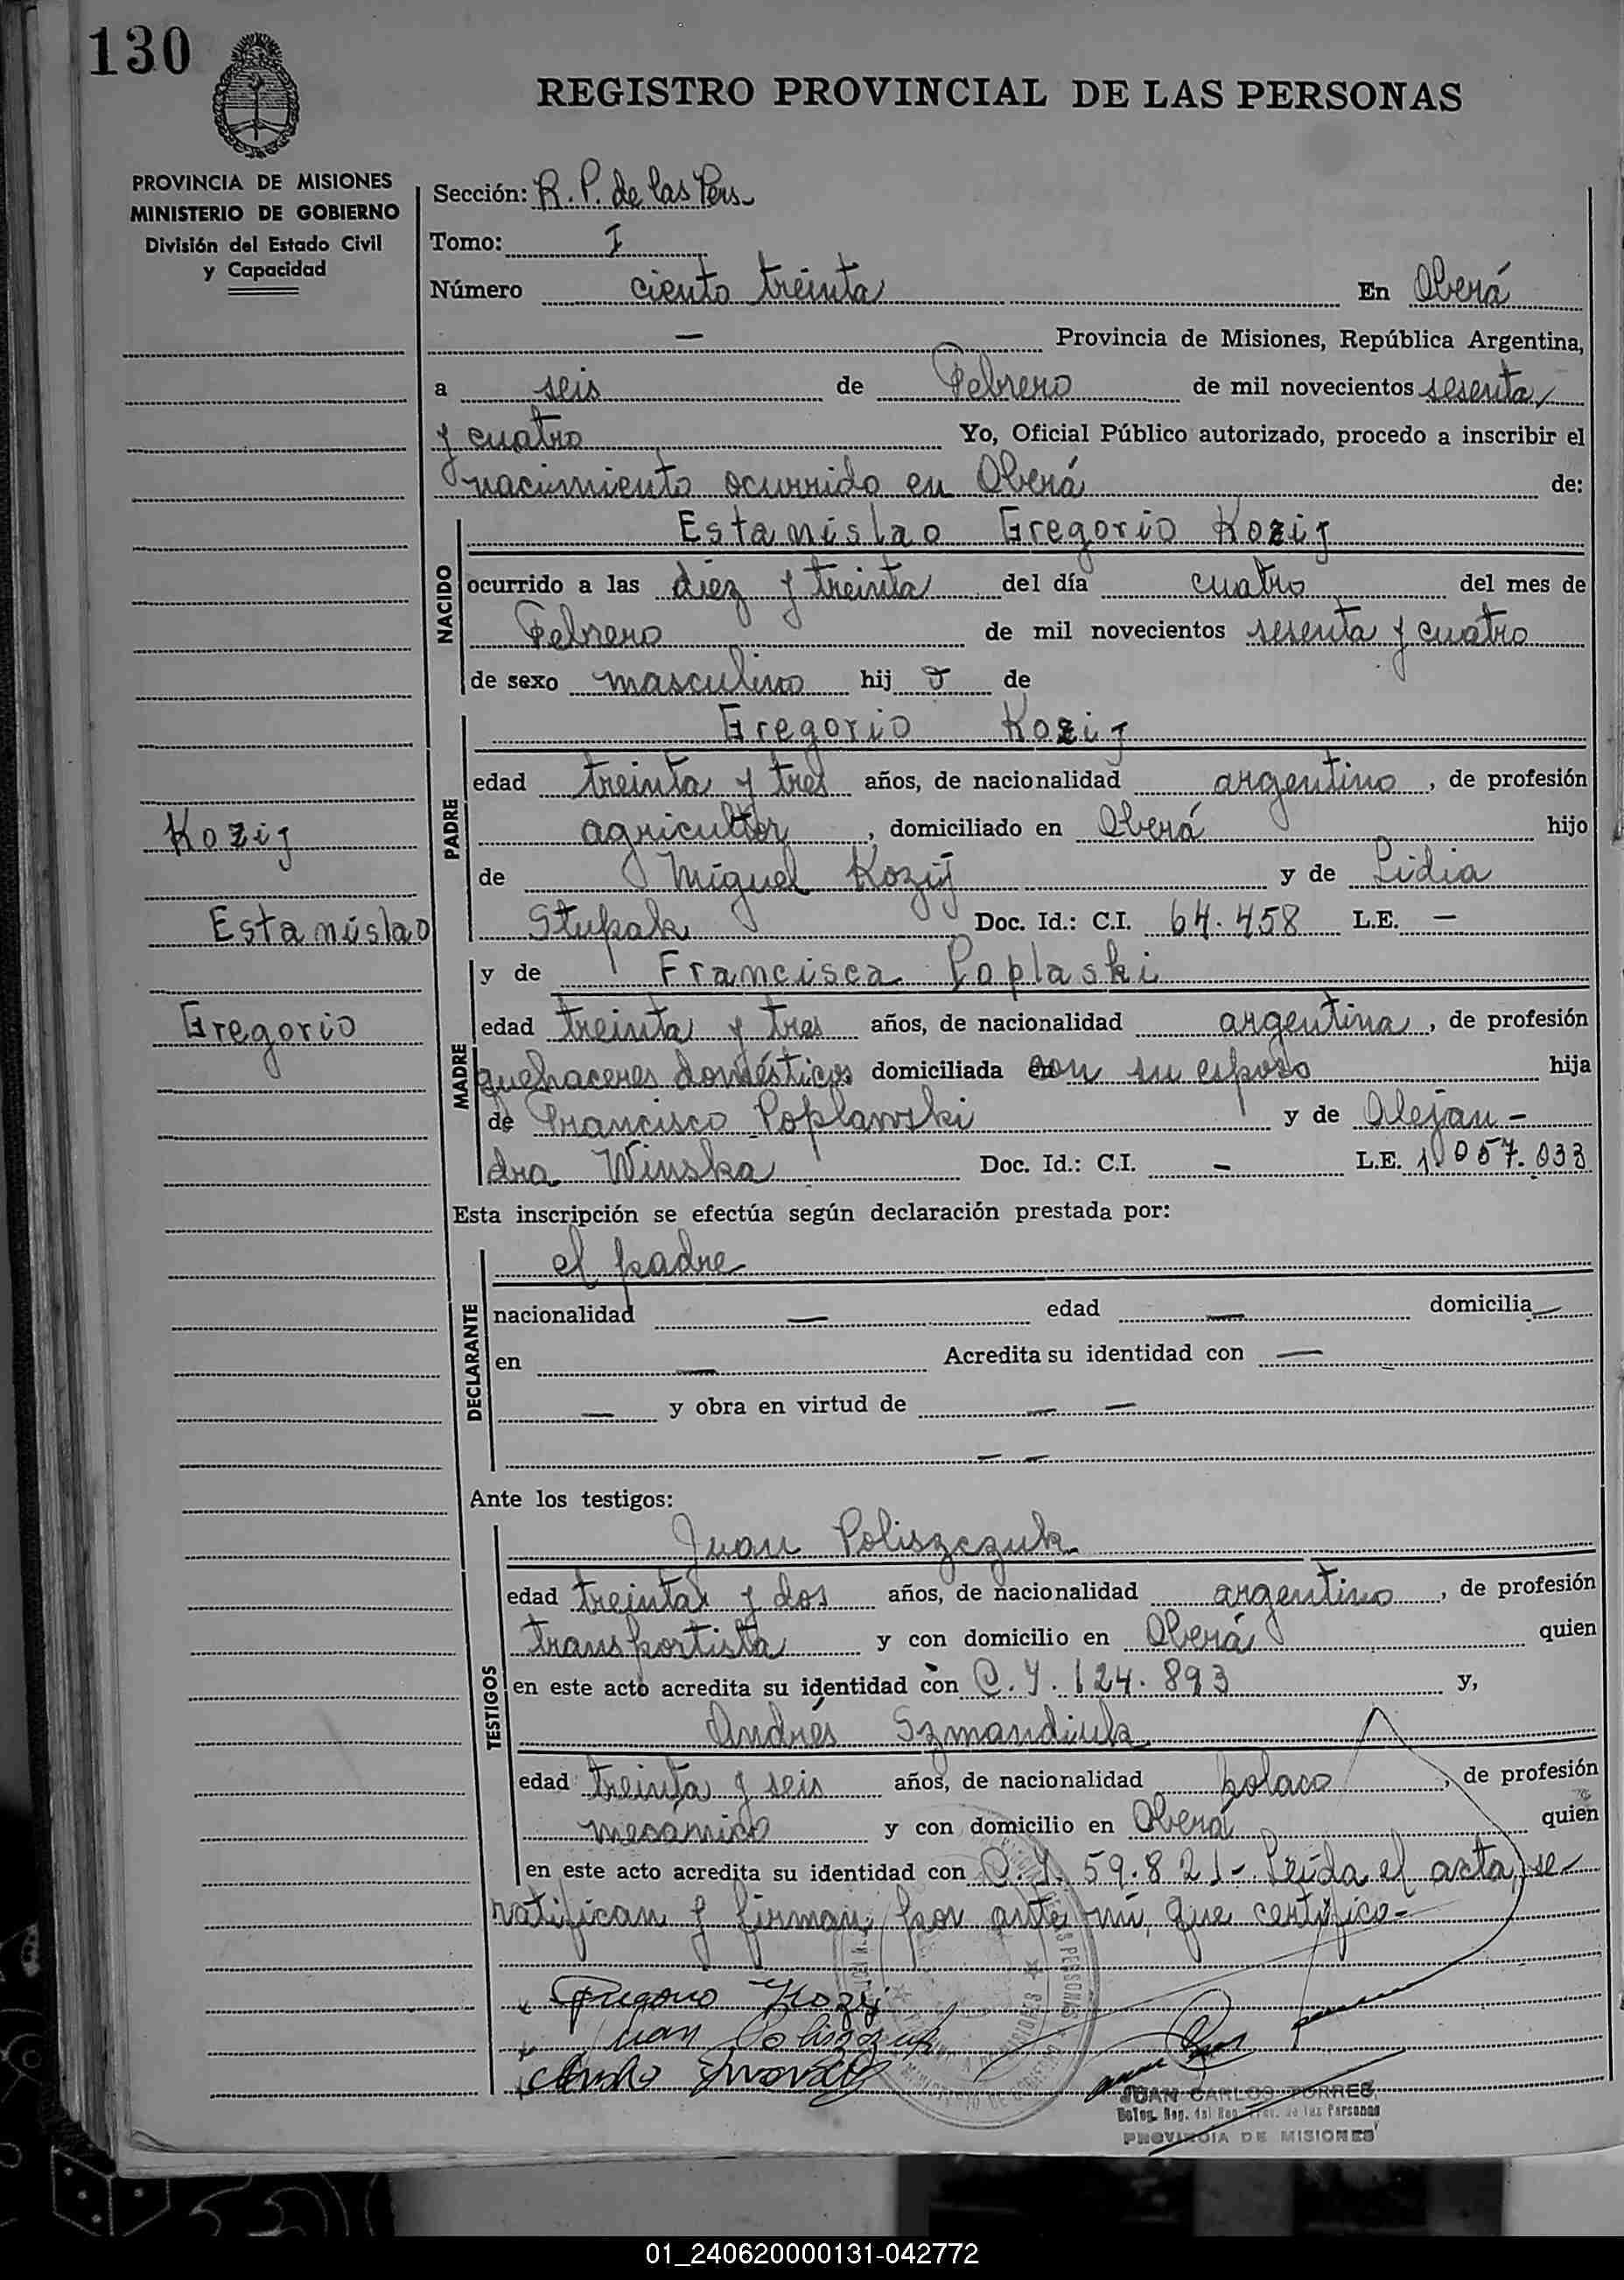 130
REGISTRO PROVINCIAL DE LAS PERSONAS
PROVINCIA DE MISIONES
MINISTERIO DE GOBIERNO
División del Estado Civil
y Capacidad
Sección: R. P. de las Pers.
Tomo: I
Número ciento treinta En Oberá
— Provincia de Misiones, República Argentina,
a seis de Febrero de mil novecientos sesenta
y cuatro Yo, Oficial Público autorizado, procedo a inscribir el
nacimiento ocurrido en Oberá de:
NACIDO
Estanislao Gregorio Kozij
ocurrido a las diez y treinta del día cuatro del mes de
Febrero de mil novecientos sesenta y cuatro
de sexo masculino hij o de
PADRE
Gregorio Kozij
edad treinta y tres años, de nacionalidad argentino, de profesión
agricultor, domiciliado en Oberá hijo
de Miguel Kozij y de Lidia
Stupak Doc. Id.: C.I. 64.458 L.E. —
Kozij
Estanislao
Gregorio
MADRE
y de Francisca Poplaski
edad treinta y tres años, de nacionalidad argentina, de profesión
quehaceres domésticos domiciliada con su esposo hija
de Francisco Poplawski y de Alejan-
dra Winska Doc. Id.: C.I. — L.E. 1.057.033
Esta inscripción se efectúa según declaración prestada por:
DECLARANTE
el padre
nacionalidad — edad — domicilia —
en — Acredita su identidad con —
— y obra en virtud de — —
— —
Ante los testigos:
TESTIGOS
Juan Poliszczuk
edad treinta y dos años, de nacionalidad argentino, de profesión
transportista y con domicilio en Oberá quien
en este acto acredita su identidad con C.I. 124.893 y,
Andrés Szmandiuk
edad treinta y seis años, de nacionalidad polaco, de profesión
mecanico y con domicilio en Oberá quien
en este acto acredita su identidad con C.I. 59.821- Leída el acta, se
ratifican y firman por ante mí, que certifico-
Gregorio Kozij
Juan Poliszczuk
JUAN CARLOS TORRES
PROVINCIA DE MISIONES
01_240620000131-042772